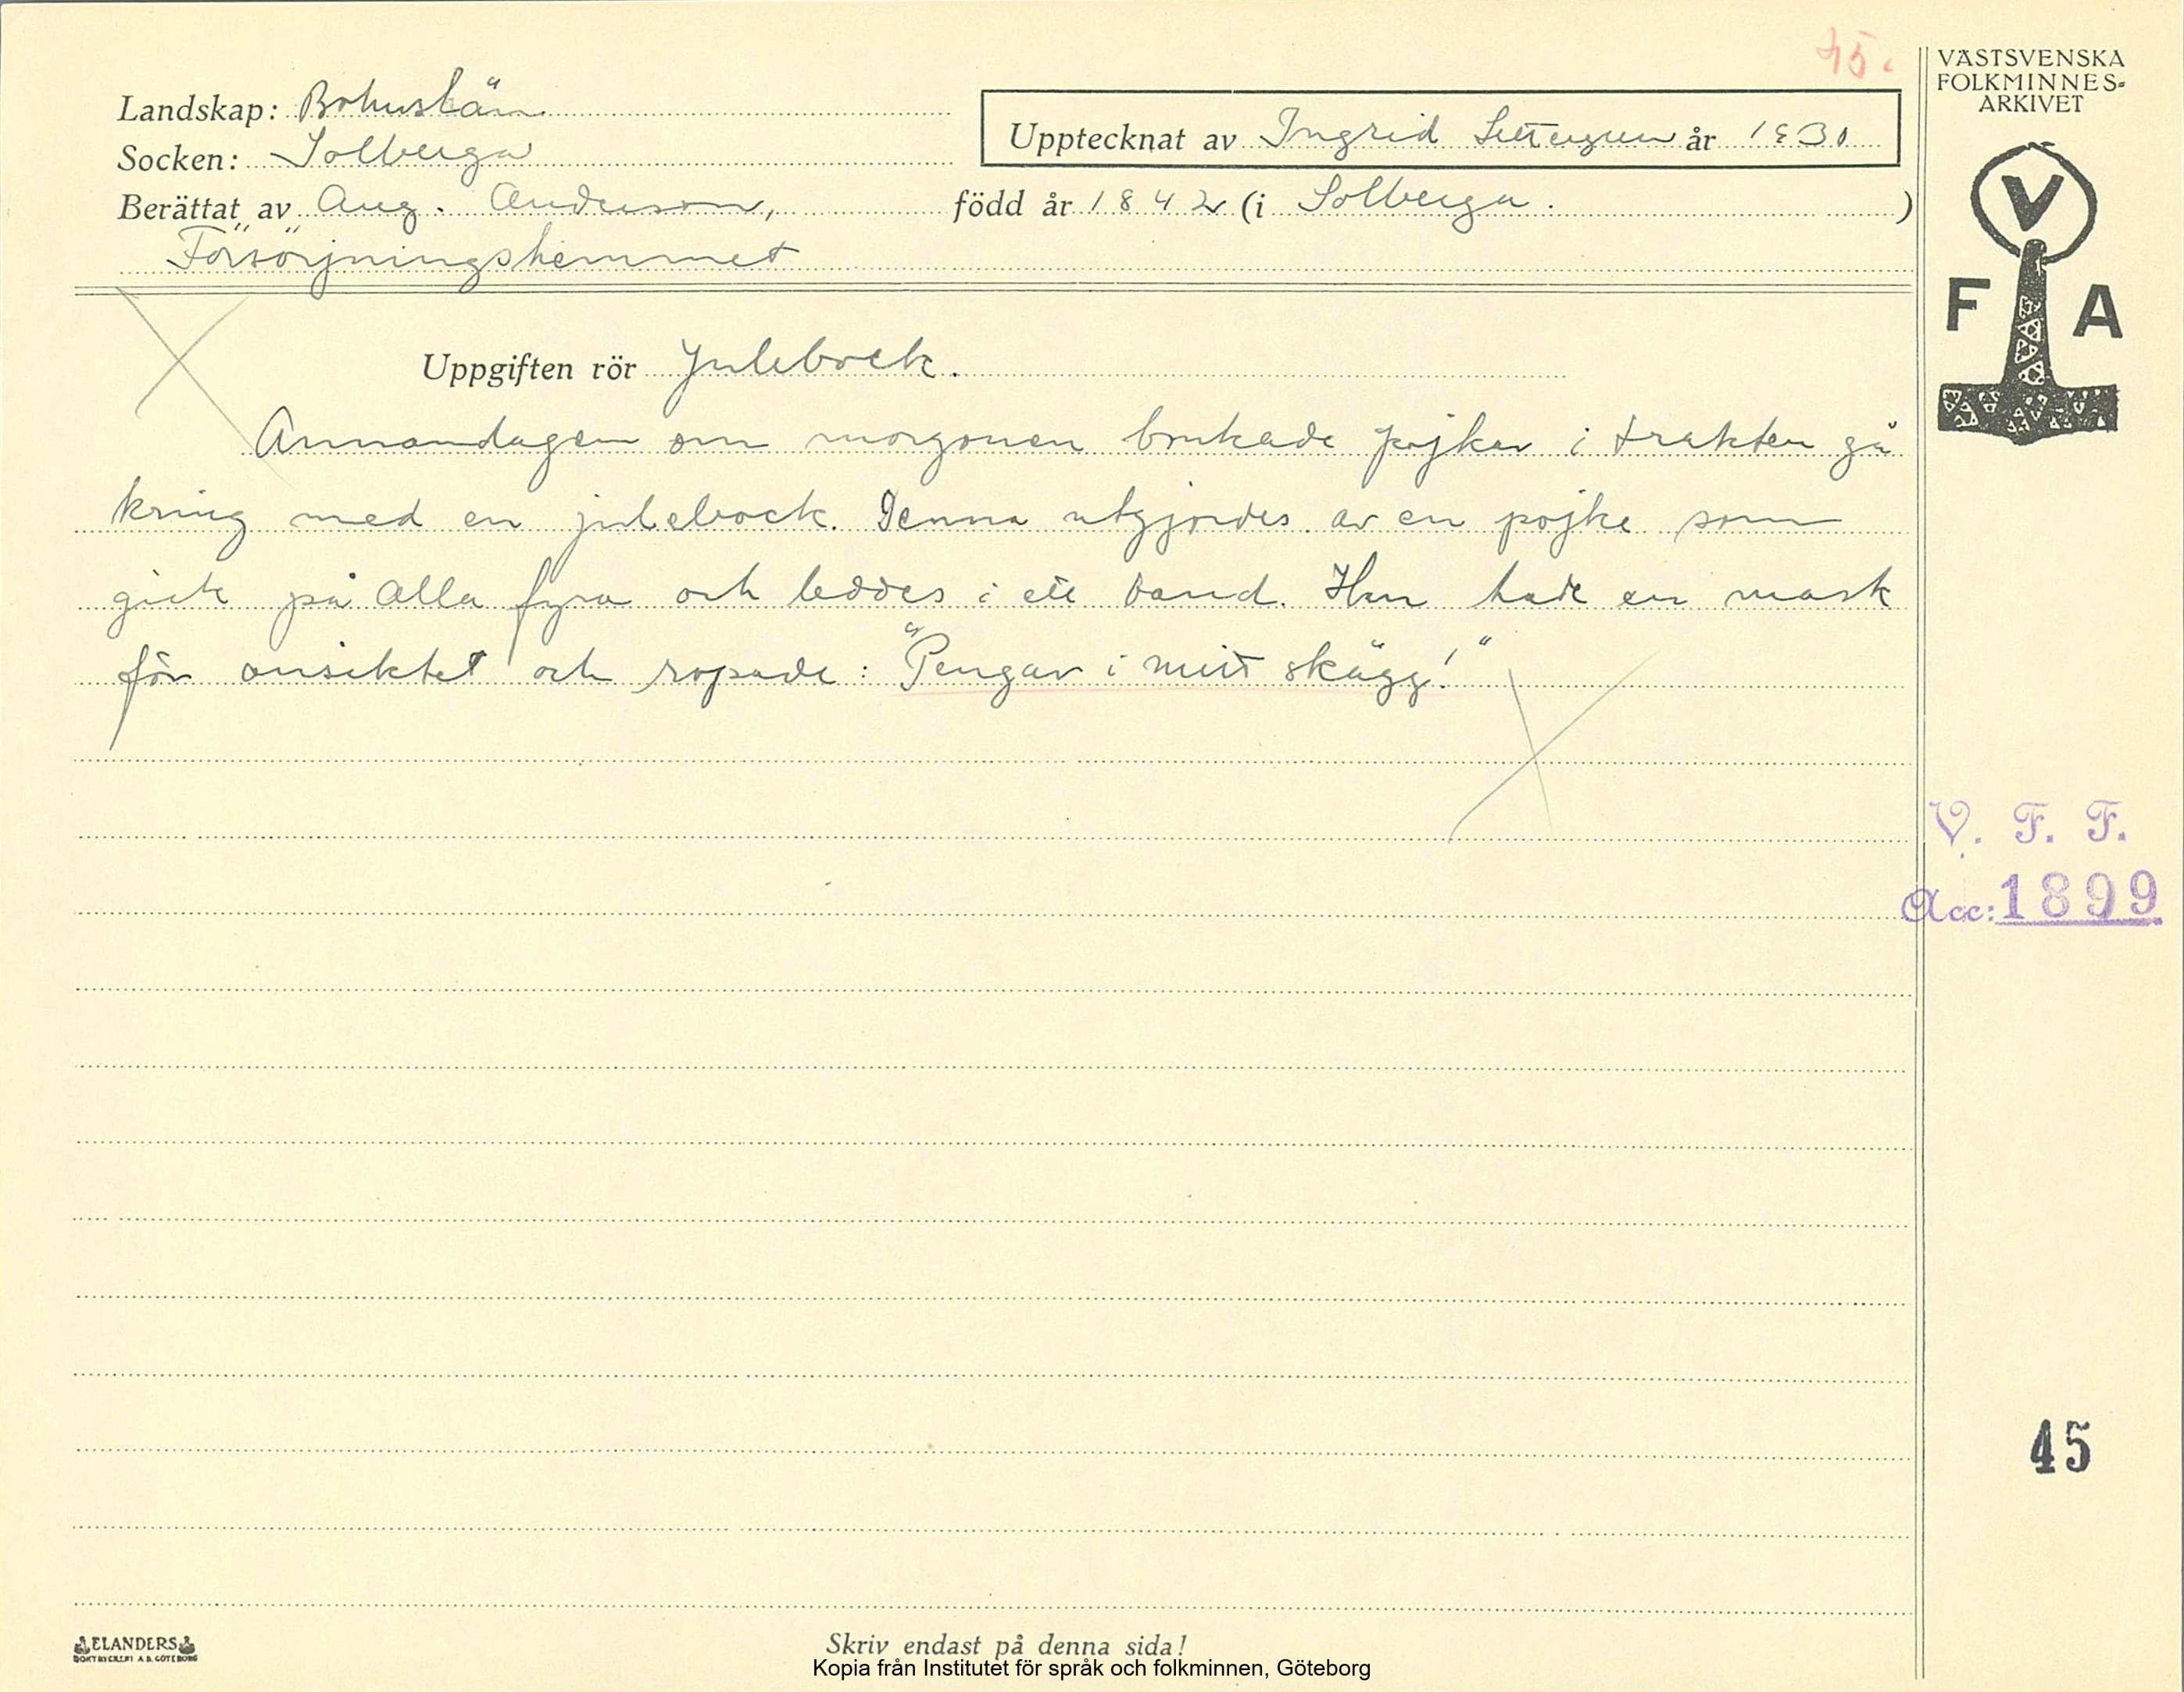 45.
VÄSTSVENSKA
FOLKMINNES-
ARKIVET
Landskap: Bohuslän
Upptecknat av Ingrid år 1930
Socken: Solberga
Berättat av Aug. Anderson, född år 1842 (i Solberga. )
Försörjningshemmet
V
F A
Uppgiften rör Julebock.
Annandagen om morgonen brukade pojkar i trakten gå
kring med en julebock. Denna utgjordes av en pojke som
gick på alla fyra och leddes i ett band. Han hade en mask
för ansiktet och ropade: "Pengar i mitt skägg!"
V. F. F.
Acc: 1899
45
ELANDERS
BOKTRYCKERI A.B. GÖTEBORG
Skriv endast på denna sida!
Kopia från Institutet för språk och folkminnen, Göteborg